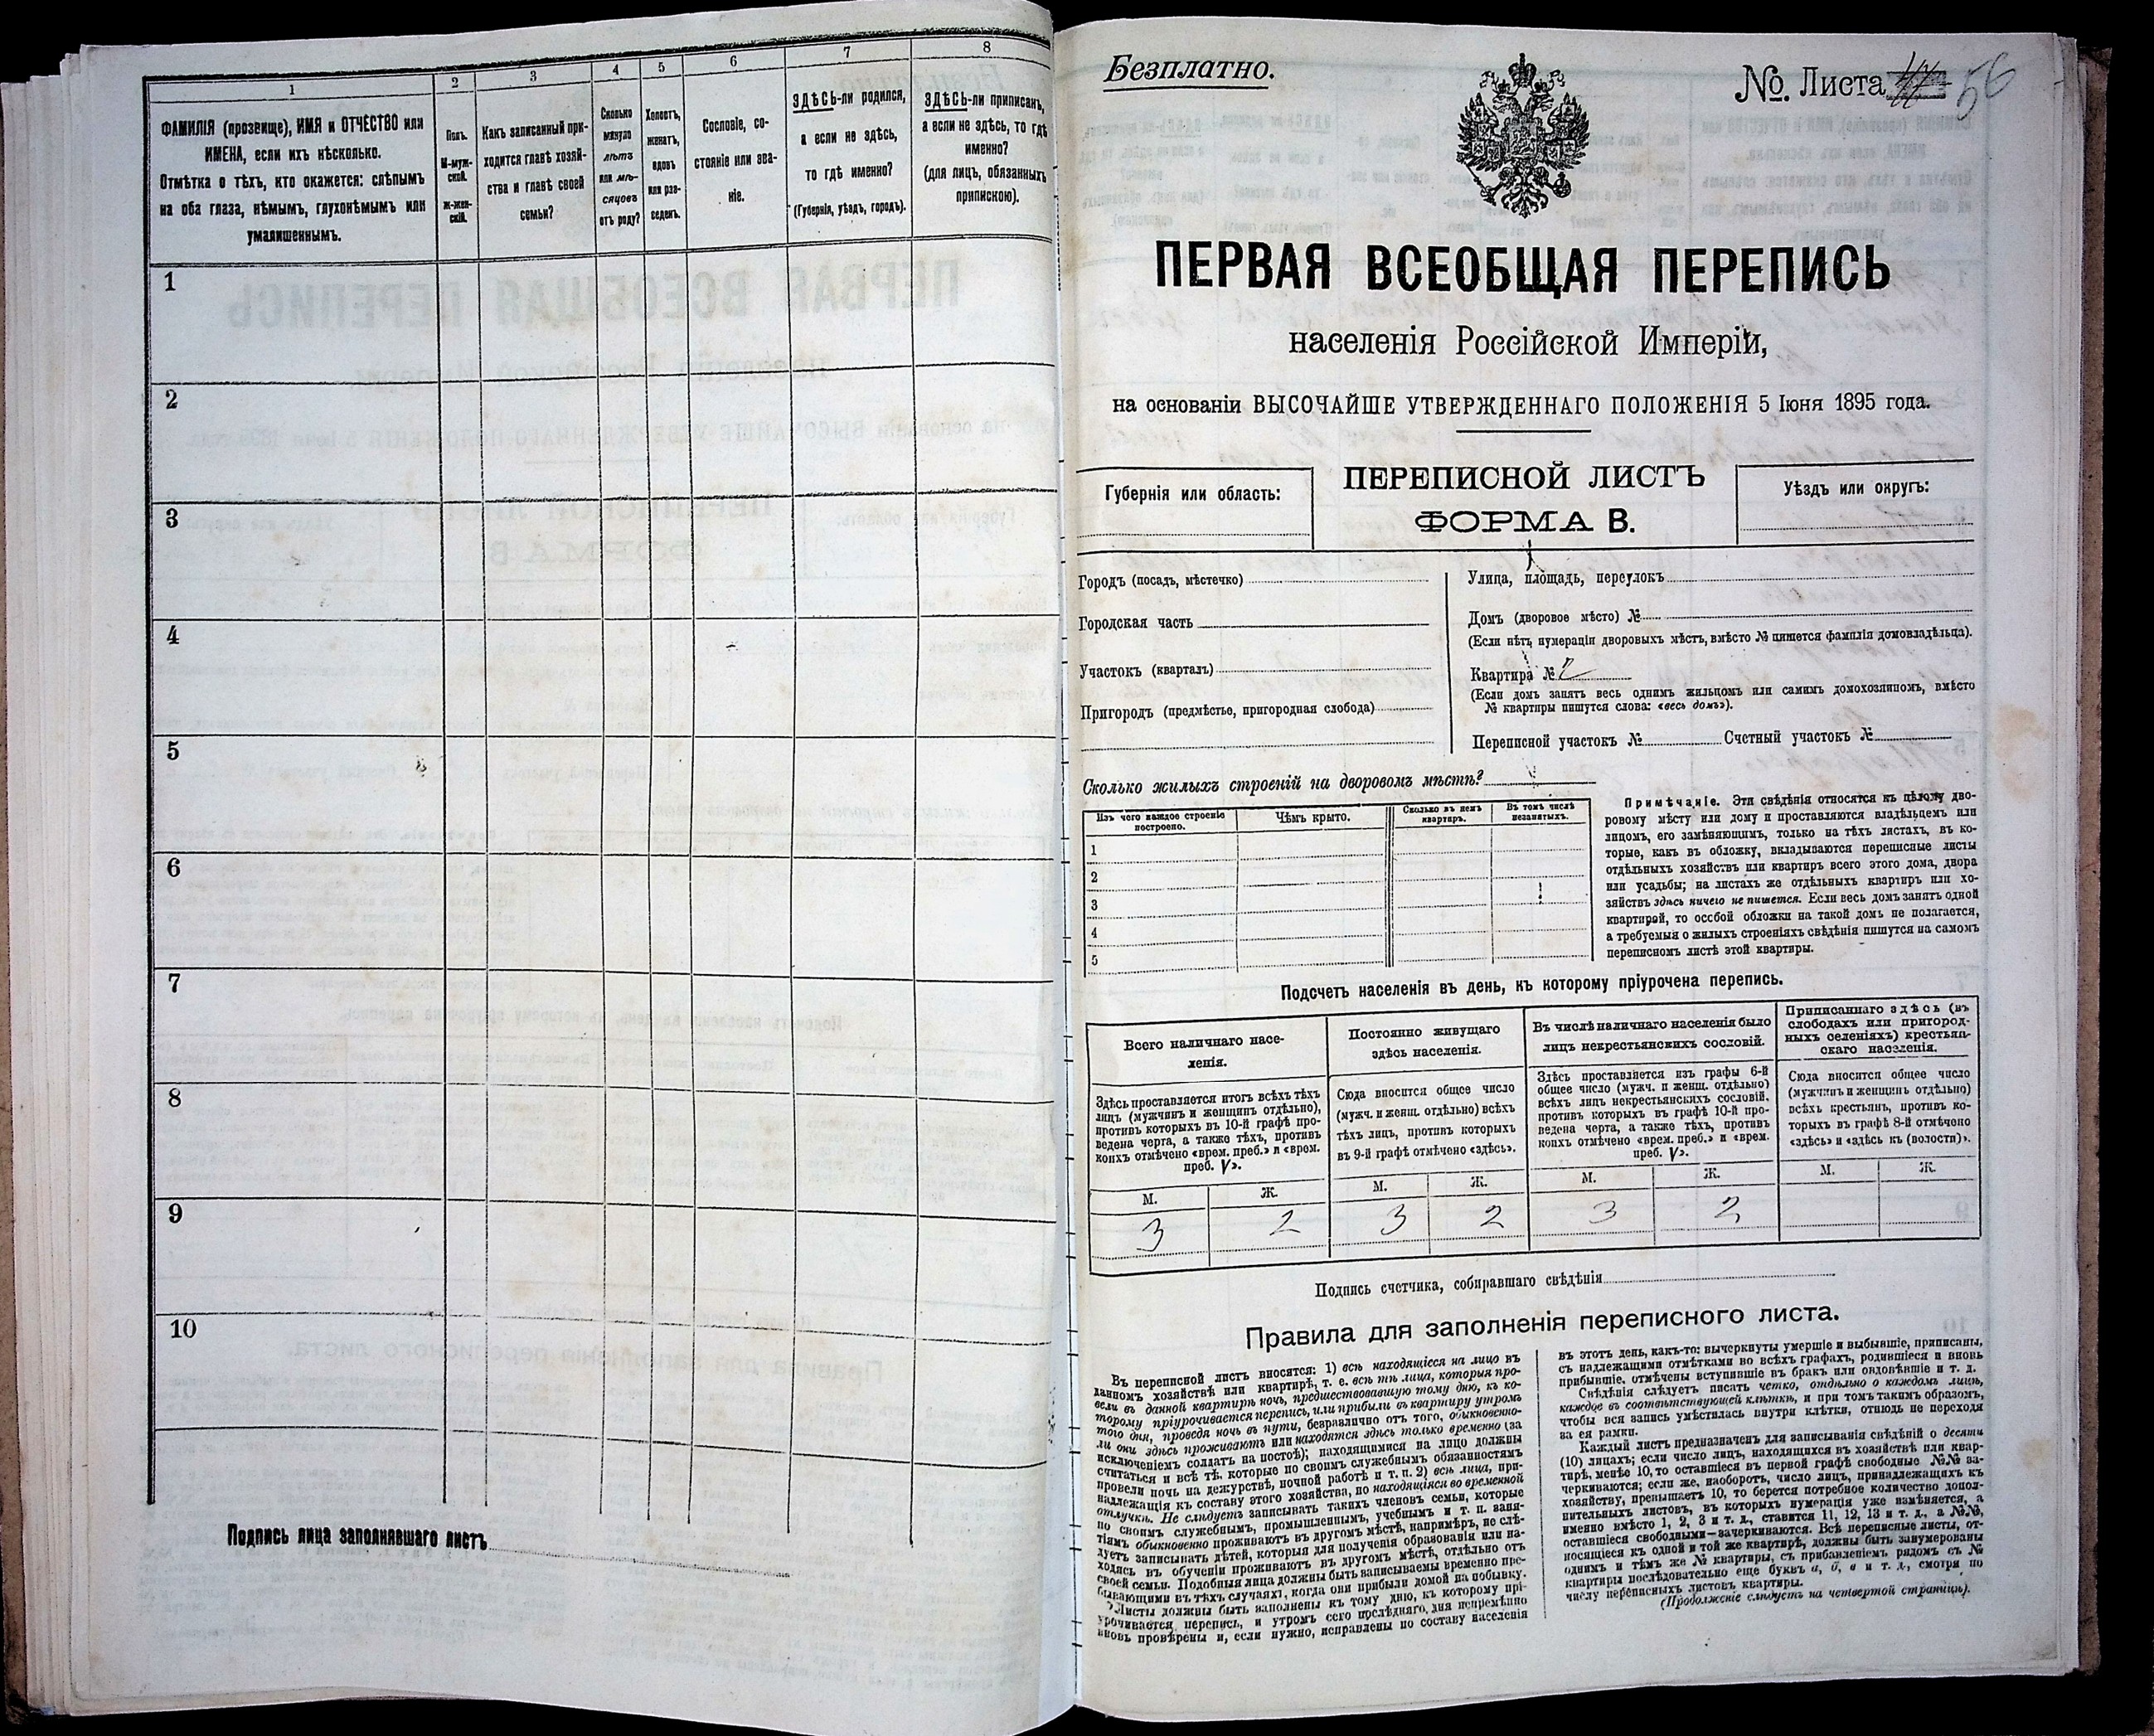 1
2
3
4
5
6
7
8
ФАМИЛІЯ (прозвище), ИМЯ и ОТЧЕСТВО или
ИМЕНА, если ихъ нѣсколько.
Отмѣтка о тѣхъ, кто окажется: слѣпымъ
на оба глаза, нѣмымъ, глухонѣмымъ или
умалишеннымъ.
Полъ.
М-муж-
ской.
ж-жен-
скій.
Какъ записанный при-
ходится главѣ хозяй-
ства и главѣ своей
семьи?
Сколько
минуло
лѣтъ
или мѣ-
сяцевъ
отъ роду?
Холостъ,
женатъ,
вдовъ
или раз-
веденъ.
Сословіе, со-
стояніе или зва-
ніе.
ЗДѢСЬ-ли родился,
а если не здѣсь,
то гдѣ именно?
(Губернія, уѣздъ, городъ).
ЗДѢСЬ-ли приписанъ,
а если не здѣсь, то гдѣ
именно?
(для лицъ, обязанныхъ
припискою).
1
2
3
4
5
6
7
8
9
10
Подпись лица заполнявшаго листъ
Безплатно.
№ Листа 56
ПЕРВАЯ ВСЕОБЩАЯ ПЕРЕПИСЬ
населенія Россійской Имперіи,
на основаніи ВЫСОЧАЙШЕ УТВЕРЖДЕННАГО ПОЛОЖЕНІЯ 5 Іюня 1895 года.
Губернія или область:
ПЕРЕПИСНОЙ ЛИСТЪ
ФОРМА В.
Уѣздъ или округъ:
Городъ (посадъ, мѣстечко)
Городская часть
Участокъ (кварталъ)
Пригородъ (предмѣстье, пригородная слобода)
Улица, площадь, переулокъ
Домъ (дворовое мѣсто) №
(Если нѣтъ нумераціи дворовыхъ мѣстъ, вмѣсто № пишется фамилія домовладѣльца).
Квартира № 2
(Если домъ занятъ весь однимъ жильцомъ или самимъ домохозяиномъ, вмѣсто
№ квартиры пишутся слова: «весь домъ»).
Переписной участокъ № Счетный участокъ №
Сколько жилыхъ строеній на дворовомъ мѣстѣ?
Изъ чего каждое строеніе
построено.
Чѣмъ крыто.
Сколько въ немъ
квартиръ.
Въ томъ числѣ
незанятыхъ.
1
2
3
4
5
Примѣчаніе. Эти свѣдѣнія относятся къ цѣлому дво-
ровому мѣсту или дому и проставляются владѣльцемъ или
лицомъ, его замѣняющимъ, только на тѣхъ листахъ, въ ко-
торые, какъ въ обложку, вкладываются переписные листы
отдѣльныхъ хозяйствъ или квартиръ всего этого дома, двора
или усадьбы; на листахъ же отдѣльныхъ квартиръ или хо-
зяйствъ здѣсь ничего не пишется. Если весь домъ занятъ одной
квартирой, то особой обложки на такой домъ не полагается,
а требуемыя о жилыхъ строеніяхъ свѣдѣнія пишутся на самомъ
переписномъ листѣ этой квартиры.
Подсчетъ населенія въ день, къ которому пріурочена перепись.
Всего наличнаго насе-
ленія.
Постоянно живущаго
здѣсь населенія.
Въ числѣ наличнаго населенія было
лицъ некрестьянскихъ сословій.
Приписаннаго здѣсь (въ
слободахъ или пригород-
ныхъ селеніяхъ) крестьян-
скаго населенія.
Здѣсь проставляется итогъ всѣхъ тѣхъ
лицъ (мужчинъ и женщинъ отдѣльно),
противъ которыхъ въ 10-й графѣ про-
ведена черта, а также тѣхъ, противъ
коихъ отмѣчено «врем. преб.» и «врем.
преб. V».
Сюда вносится общее число
(мужч. и женщ. отдѣльно) всѣхъ
тѣхъ лицъ, противъ которыхъ
въ 9-й графѣ отмѣчено «здѣсь».
Здѣсь проставляется изъ графы 6-й
общее число (мужч. и женщ. отдѣльно)
всѣхъ лицъ некрестьянскихъ сословій,
противъ которыхъ въ графѣ 10-й про-
ведена черта, а также тѣхъ, противъ
коихъ отмѣчено «врем. преб.» и «врем.
преб. V».
Сюда вносится общее число
(мужчинъ и женщинъ отдѣльно)
всѣхъ крестьянъ, противъ ко-
торыхъ въ графѣ 8-й отмѣчено
«здѣсь» и «здѣсь къ (волости)».
М. Ж. М. Ж. М. Ж. М. Ж.
3 2 3 2 3 2
Подпись счетчика, собиравшаго свѣдѣнія
Правила для заполненія переписного листа.
Въ переписной листъ вносятся: 1) всѣ находящіеся на лицо въ
данномъ хозяйствѣ или квартирѣ, т. е. всѣ тѣ лица, которыя про-
вели въ данной квартирѣ ночь, предшествовавшую тому дню, къ ко-
торому пріурочивается перепись, или прибыли въ квартиру утромъ
того дня, проведя ночь въ пути, безразлично отъ того, обыкновенно-
ли они здѣсь проживаютъ или находятся здѣсь только временно (за
исключеніемъ солдатъ на постоѣ); находящимися на лицо должны
считаться и всѣ тѣ, которые по своимъ служебнымъ обязанностямъ
провели ночь на дежурствѣ, ночной работѣ и т. п. 2) всѣ лица, при-
надлежащія къ составу этого хозяйства, но находящіяся во временной
отлучкѣ. Не слѣдуетъ записывать такихъ членовъ семьи, которые
по своимъ служебнымъ, промышленнымъ, учебнымъ и т. п. заня-
тіямъ обыкновенно проживаютъ въ другомъ мѣстѣ, напримѣръ, не слѣ-
дуетъ записывать дѣтей, которыя для полученія образованія или на-
ходясь въ обученіи проживаютъ въ другомъ мѣстѣ, отдѣльно отъ
своей семьи. Подобныя лица должны быть записываемы временно пре-
бывающими въ тѣхъ случаяхъ, когда они прибыли домой на побывку.
Листы должны быть заполнены къ тому дню, къ которому прі-
урочивается перепись, и утромъ сего послѣдняго дня непремѣнно
вновь провѣрены и, если нужно, исправлены по составу населенія
въ этотъ день, какъ-то: вычеркнуты умершіе и выбывшіе, приписаны,
съ надлежащими отмѣтками во всѣхъ графахъ, родившіеся и вновь
прибывшіе, отмѣчены вступившіе въ бракъ или овдовѣвшіе и т. д.
Свѣдѣнія слѣдуетъ писать четко, отдѣльно о каждомъ лицѣ,
каждое въ соотвѣтствующей клѣткѣ, и при томъ такимъ образомъ,
чтобы вся запись умѣстилась внутри клѣтки, отнюдь не переходя
за ея рамки.
Каждый листъ предназначенъ для записыванія свѣдѣній о десяти
(10) лицахъ; если число лицъ, находящихся въ хозяйствѣ или квар-
тирѣ, менѣе 10, то оставшіеся въ первой графѣ свободные №№ за-
черкиваются; если же, наоборотъ, число лицъ, принадлежащихъ къ
хозяйству, превышаетъ 10, то берется потребное количество допол-
нительныхъ листовъ, въ которыхъ нумерація уже измѣняется, а
именно вмѣсто 1, 2, 3 и т. д., ставится 11, 12, 13 и т. д., а №№,
оставшіеся свободными—зачеркиваются. Всѣ переписные листы, от-
носящіеся къ одной и той же квартирѣ, должны быть занумерованы
однимъ и тѣмъ же № квартиры, съ прибавленіемъ рядомъ съ №
квартиры послѣдовательно еще буквъ а, б, в и т. д., смотря по
числу переписныхъ листовъ квартиры.
(Продолженіе слѣдуетъ на четвертой страницѣ).